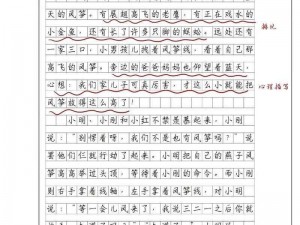 天的风筝。有展翅高飞的老鹰,有正在戏水的
小金鱼,还有长了许多只脚的蜈蚣。远处还有
一家三口,小男孩儿拽着风筝线,看着自己那
高高飞的风筝。旁边的爸爸妈妈也仰望着蓝天,
心想:我们的儿子可真厉害,才这么小就能把
风筝放得这么高了!
排比
心理描写
小刚、小明和小红不禁羡慕起来。小刚
说:“别愣着呀,我们不是也有风筝吗?”说
罢他们仨就行动了起来。小明把自己的燕子风
筝高高举过头顶,等待着小刚的命令。而小刚
则右手拿着线轴,左手拿着风筝线,对小明
说:“等一会儿风来了,我说三二一之后你就